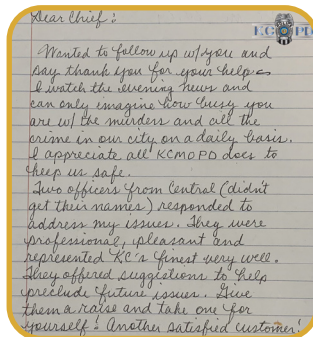 Dear Chief:
KC PD
Wanted to follow up w/ you and
say thank you for your help
I watch the evening news and
can only imagine how busy you
are w/ the murders and all the
crime in our city on a daily basis.
I appreciate all KCMOPD does to
keep us safe.
Two officers from Central (didn't
get their names) responded to
address my issues. They were
professional, pleasant and
represented KC's finest very well.
They offered suggestions to help
preclude future issues. Give
them a raise and take one for
yourself! Another satisfied customer!